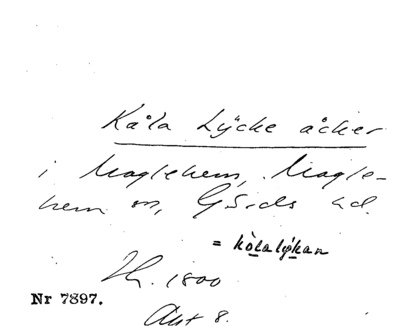 Kåla Lÿcke åcker
i Maglehem, Magle-
hem sn, Gärds hd.
= kòlalýkan
1800
Nr 7897.
Akt 8.